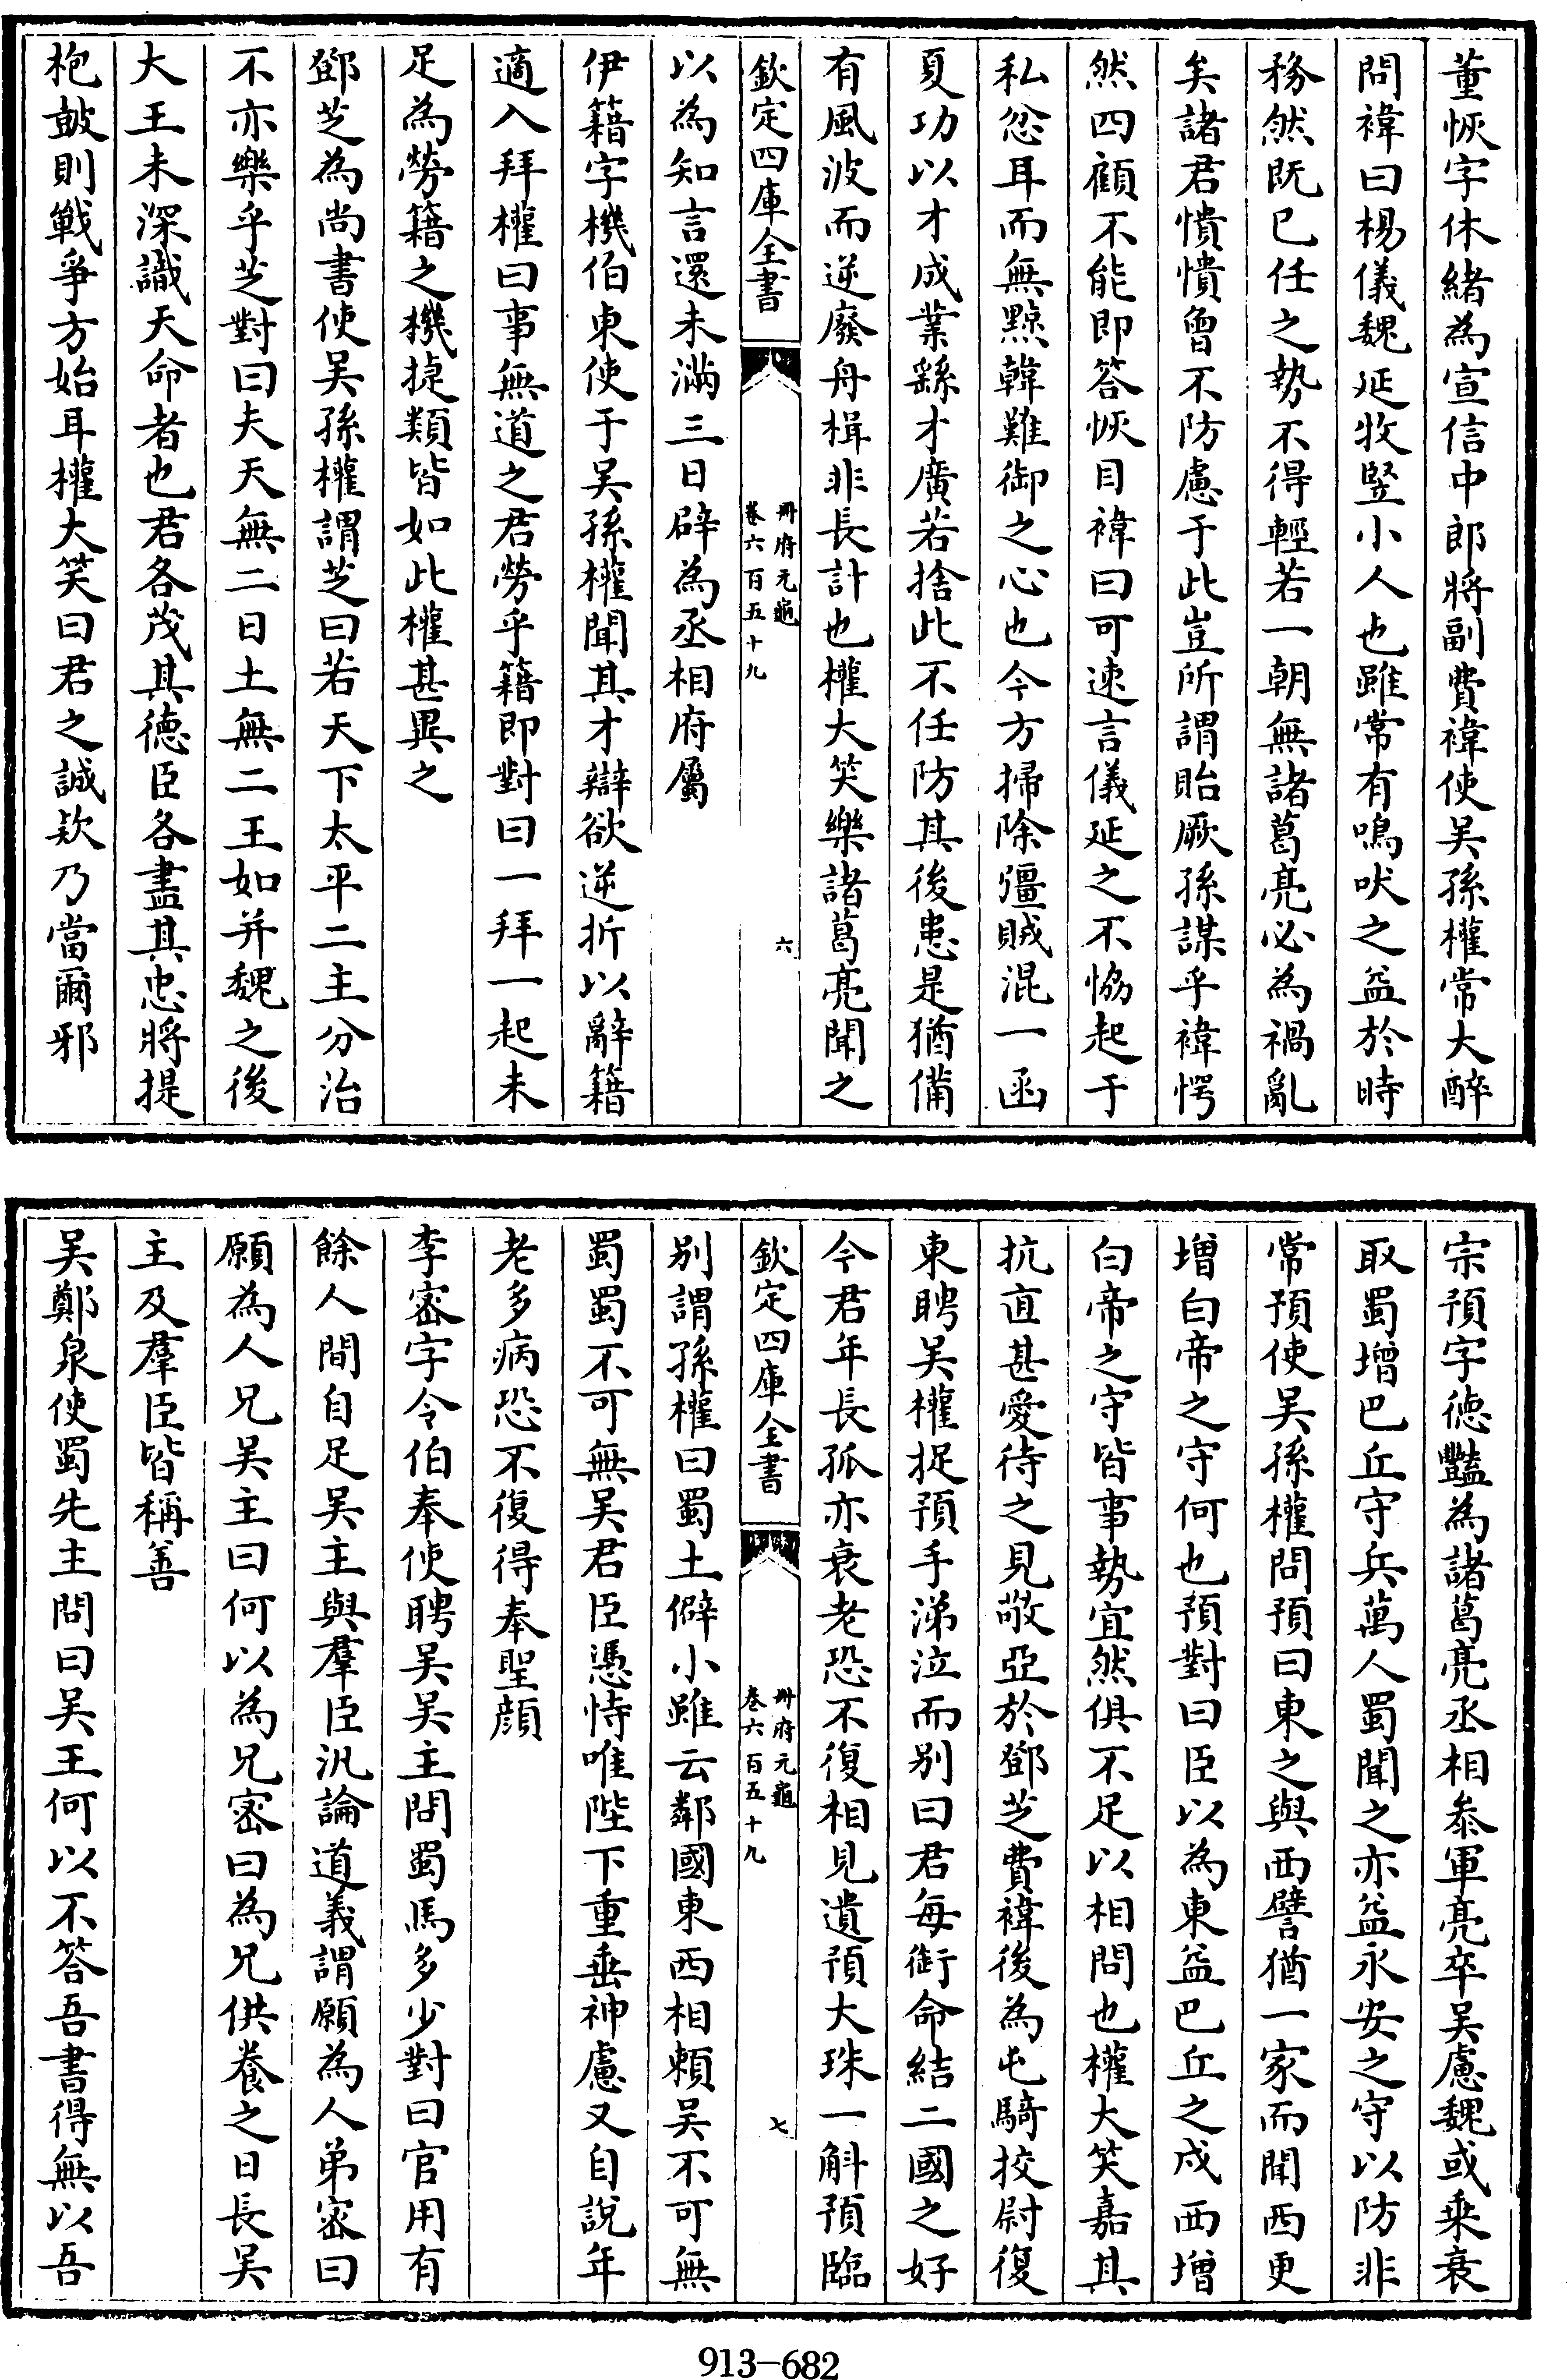 董恢字休緒為宣信中郎將副費禕使吳孫權常大醉
問禕曰楊儀魏延牧豎小人也雖常有鳴吠之益於時
務然既已任之勢不得輕若一朝無諸葛亮必為禍亂
矣諸君憒憒曾不防慮于此豈所謂貽厥孫謀乎禕愕
然四顧不能即答恢目禕曰可速言儀延之不恊起于
私忿耳而無黥韓難御之心也今方掃除彊賊混一函
夏功以才成業繇才廣若捨此不任防其後患是猶備
有風波而逆廢舟楫非長計也權大笑樂諸葛亮聞之
欽定四庫全書 冊府元龜 卷六百五十九 六
以為知言還未滿三日辟為丞相府屬
伊籍字機伯東使于吳孫權聞其才辯欲逆折以辭籍
適入拜權曰事無道之君勞乎籍即對曰一拜一起未
足為勞籍之機捷類皆如此權甚異之
鄧芝為尚書使吳孫權謂芝曰若天下太平二主分治
不亦樂乎芝對曰夫天無二日土無二王如并魏之後
大王未深識天命者也君各茂其徳臣各盡其忠將提
枹鼓則戰爭方始耳權大笑曰君之誠欵乃當爾邪
宗預字徳豔為諸葛亮丞相叅軍亮卒吳慮魏或乗衰
取蜀增巴丘守兵萬人蜀聞之亦益永安之守以防非
常預使吳孫權問預曰東之與西譬猶一家而聞西更
增白帝之守何也預對曰臣以為東益巴丘之戍西增
白帝之守皆事勢宜然俱不足以相問也權大笑嘉其
抗直甚愛待之見敬亞於鄧芝費禕後為屯騎挍尉復
東聘吳權捉預手涕泣而别曰君每銜命結二國之好
今君年長孤亦衰老恐不復相見遺預大珠一斛預臨
欽定四庫全書 冊府元龜 卷六百五十九 七
别謂孫權曰蜀土僻小雖云鄰國東西相頼吳不可無
蜀蜀不可無吳君臣憑恃唯陛下重垂神慮又自說年
老多病恐不復得奉聖顔
李宻字令伯奉使聘吳吳主問蜀馬多少對曰官用有
餘人間自足吳主與羣臣汎論道義謂願為人弟宻曰
願為人兄吳主曰何以為兄宻曰為兄供養之日長吳
主及羣臣皆稱善
吳鄭泉使蜀先主問曰吳王何以不答吾書得無以吾
913-682